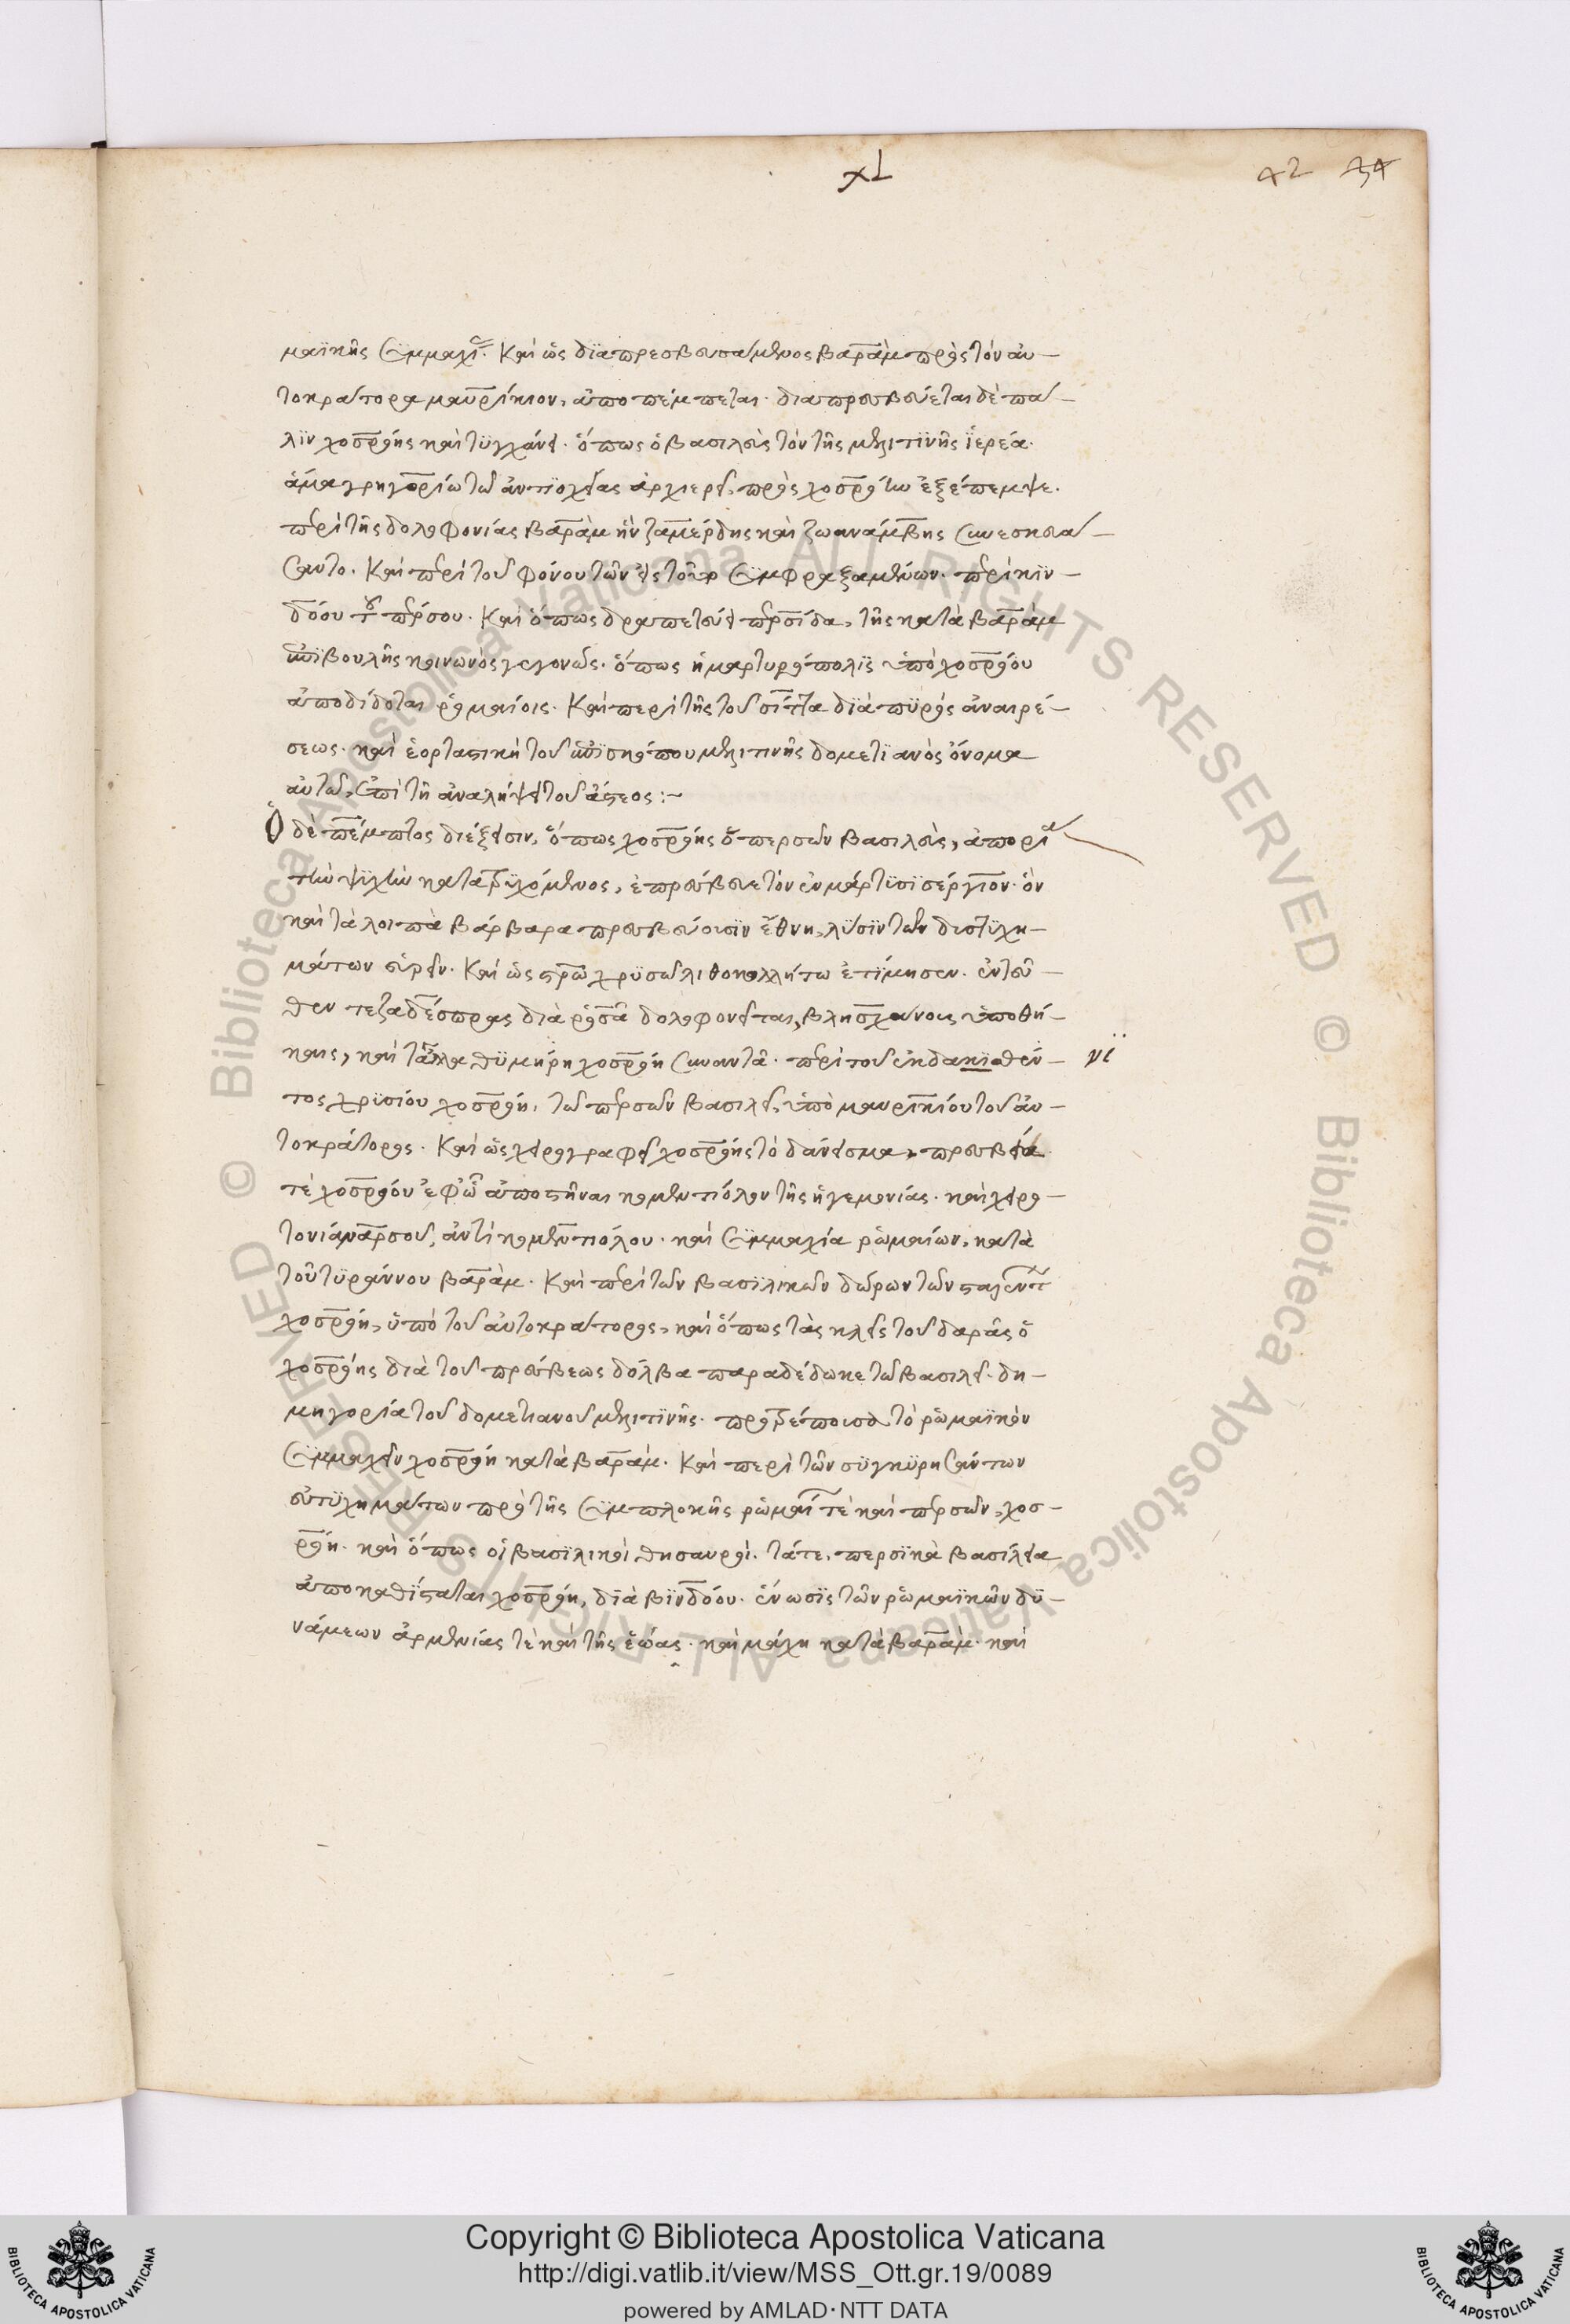 xL 42 34
μαϊκῆς συμμαχίας. καὶ ὡς διαπρεσβευσάμενος βαρὰμ πρὸς τὸν αὐ-
τοκράτορα μαυρίκιον, ἀποπέμπεται. διαπρεσβεύεται δὲ πά-
λιν χοσρόης καὶ τυγχάνει. ὅπως ὁ βασιλεὺς τὸν τῆς μελιτινῆς ἱερέα.
ἅμα γρηγορίω τῶ ἀντιοχείας ἀρχιερεῖ, πρὸς χοσρόην ἐξέπεμψε.
περὶ τῆς δολοφονίας βαρὰμ ἣν ζαμέρδης καὶ ζωαναμβης συνεσκευά-
σαντο. καὶ περὶ τοῦ φόνου τῶν εἰς τοῦτο συμφραξαμένων. περὶ βιν-
δόου τοῦ πέρσου. καὶ ὅπως δραπετεύει περσίδα, τῆς κατὰ βαρὰμ
ἐπιβουλῆς κοινωνὸς γεγονώς. ὅπως ἡ μαρτυρόπολις ὑπὸ χοσρόου
ἀποδίδοται ῥωμαίοις. καὶ περὶ τῆς τοῦ σίττα διὰ πυρὸς ἀναιρέ-
σεως. καὶ ἑορταστικὴ τοῦ ἐπισκόπου μελιτινῆς δομετιανὸς ὄνομα
αὐτῶ, ἐπὶ τῆ ἀναλήψει τοῦ ἄστεος:~
Ὁ δὲ πέμπτος διέξεισιν, ὅπως χοσρόης ὁ περσῶν βασιλεὺς, ἀπορία
τὴν ψυχὴν καταστυχόμενος, ἐπρέσβευε τὸν ἐν μάρτυσι σέργιον. ὃν
καὶ τὰ λοιπὰ βάρβαρα πρεσβεύουσιν ἔθνη, λύσιν τῶν δυστυχη-
μάτων εὑρεῖν. καὶ ὡς στρῶ χρυσῶ λιθοκολλήτω ἐτίμησεν. ἐντεῦ-
θεν τε ζαδέσπρας διὰ ῥοσᾶ δολοφονεῖται, βλησχάνους ὑποθή-
καις, καὶ τἄλλα θυμήρη χοσρόη συναντᾶ. περὶ τοῦ ἐκδακιαθέν- νι
τος χρυσίου χοσρόη, τῶ περσῶν βασιλεῖ, ὑπὸ μαυρικίου τοῦ αὐ-
τοκράτορος. καὶ ὡς χειρογραφεῖ χοσρόης τὸ δάνεισμα, πρεσβεία
τὲ χοσρόου ἐφ' ὧ ἀποστῆναι κομεντίολον τῆς ἡγεμονίας. καὶ χειρο-
τονία ναρσοῦ, ἀντὶ κομεντιόλου. καὶ συμμαχία ῥωμαίων, κατὰ
τοῦ τυράννου βαρὰμ. καὶ περὶ τῶν βασιλικῶν δώρων τῶν σταλέντων
χοσρόη, ὑπὸ τοῦ αὐτοκράτορος, καὶ ὅπως τὰς κλεῖς τοῦ δαρᾶς ὁ
χοσρόης διὰ τοῦ πρέσβεως δολβα παραδέδωκε τῶ βασιλεῖ. δη-
μηγορία τοῦ δομετιανοῦ μελιτινῆς. προτρέπουσα τὸ ῥωμαϊκὸν
συμμαχεῖν χοσρόη κατὰ βαρὰμ. καὶ περὶ τῶν συγκυρησάντων
εὐτυχημάτων πρὸ τῆς συμπλοκῆς ῥωμαίων τὲ καὶ περσῶν, χοσ-
ρόη. καὶ ὅπως οἱ βασιλικοὶ θησαυροὶ. τάτε περσικὰ βασίλεια
ἀποκαθίσταται χοσρόη, διὰ βινδόου. ἕνωσις τῶν ῥωμαϊκῶν δυ-
νάμεων ἀρμενίας τὲ καὶ τῆς ἑώας. καὶ μάχη κατὰ βαρὰμ. καὶ
Copyright © Biblioteca Apostolica Vaticana
http://digi.vatlib.it/view/MSS_Ott.gr.19/0089
powered by AMLAD·NTT DATA